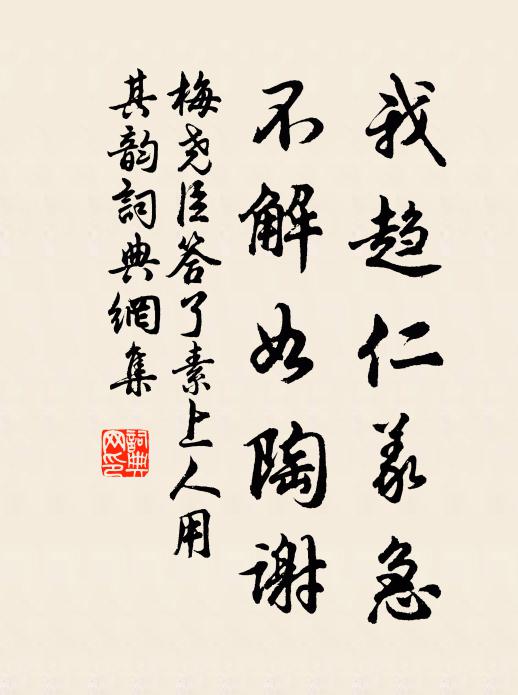 我趋仁义急
不解如陶谢
梅尧臣答了素上人用
其韵词典網集
詞典网印